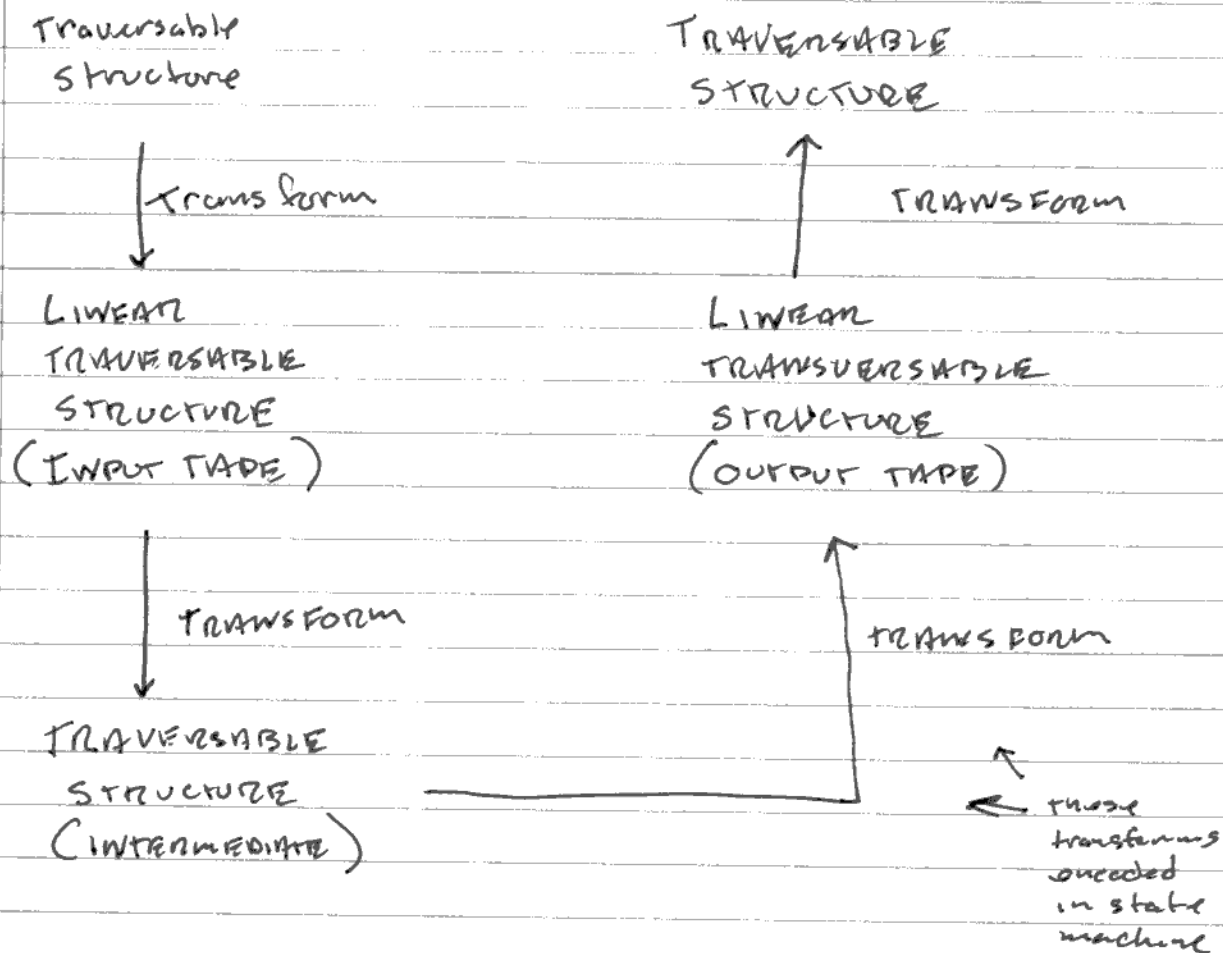 Traversable
structure
Transform
LINEAR
TRAVERSABLE
STRUCTURE
(INPUT TAPE)
TRANSFORM
TRAVERSABLE
STRUCTURE
(INTERMEDIATE)
TRAVERSABLE
STRUCTURE
TRANSFORM
LINEAR
TRANSVERSABLE
STRUCTURE
(OUTPUT TAPE)
TRANSFORM
these
transforms
encoded
in state
machine